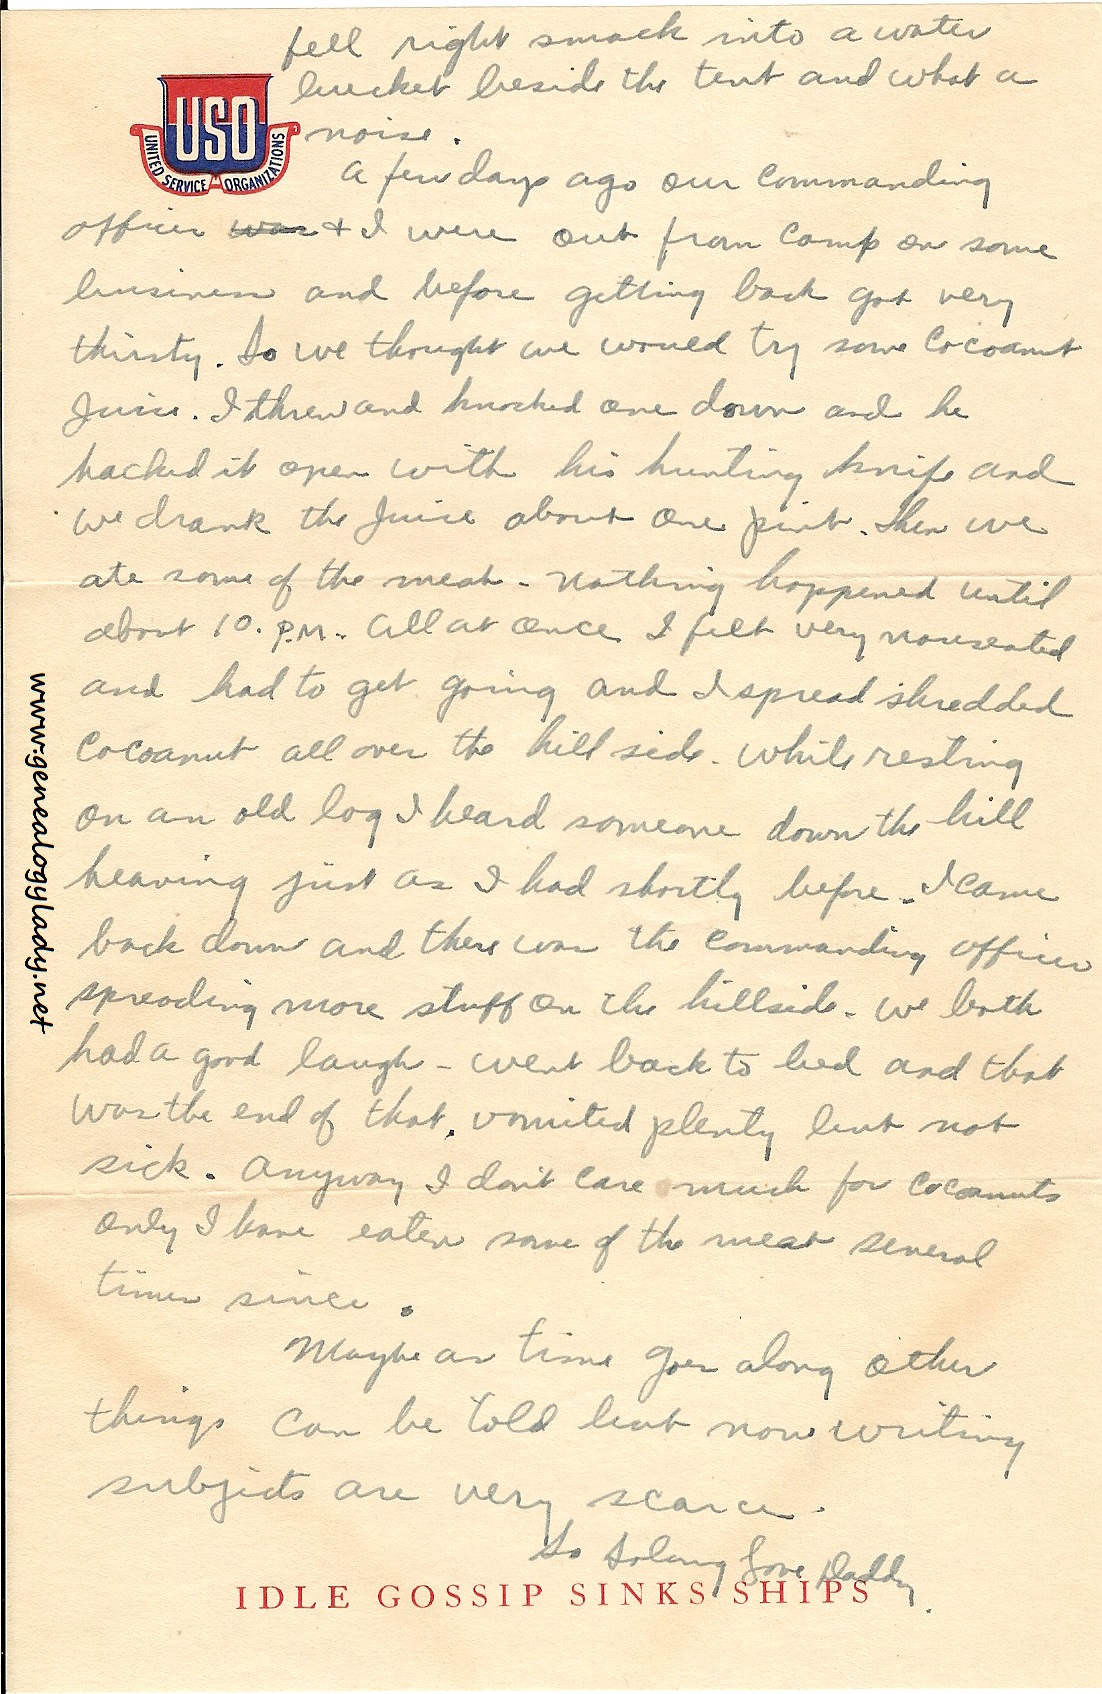 fell right smack into a water
bucket beside the tent and what a
noise.
USO
UNITED SERVICE ORGANIZATIONS
A few days ago our commanding
officer was + I were out from camp on some
business and before getting back got very
thirsty. So we thought we would try some Cocoanut
Juice. I threw and knocked one down and he
hacked it open with his hunting knife and
we drank the Juice about one pint. Then we
ate some of the meat - nothing happened until
about 10. P.M. All at once I felt very nauseated
and had to get going and I spread shredded
Cocoanut all over the hill side. While resting
on an old log I heard someone down the hill
heaving just as I had shortly before. I came
back down and there was the commanding officer
spreading more stuff on the hillside. We both
had a good laugh - went back to bed and that
was the end of that. Vomited plenty but not
sick. Anyway I don't care much for Cocoanuts
only I have eaten some of the meat several
times since.
Maybe as time goes along other
things can be told but now writing
subjects are very scarce.
So Solong Love Daddy.
IDLE GOSSIP SINKS SHIPS
www.genealogylady.net